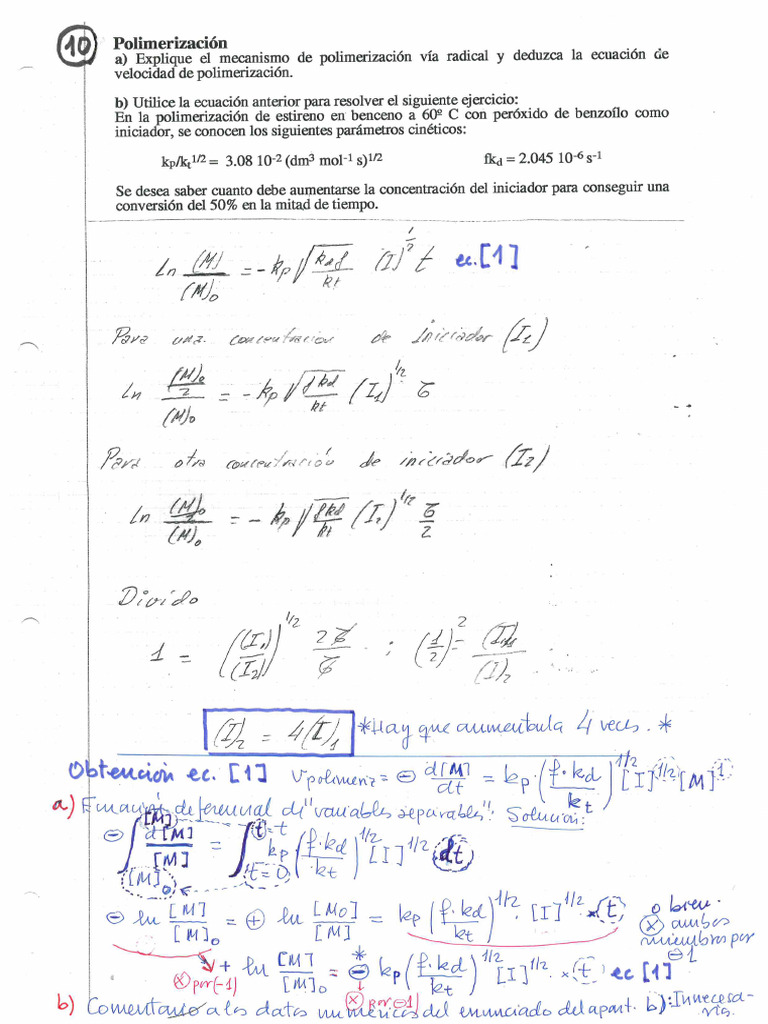 10
Polimerización
a) Explique el mecanismo de polimerización vía radical y deduzca la ecuación de
velocidad de polimerización.
b) Utilice la ecuación anterior para resolver el siguiente ejercicio:
En la polimerización de estireno en benceno a 60º C con peróxido de benzoílo como
iniciador, se conocen los siguientes parámetros cinéticos:
kp/kt^1/2 = 3.08 10^-2 (dm^3 mol^-1 s)^1/2 fkd = 2.045 10^-6 s^-1
Se desea saber cuanto debe aumentarse la concentración del iniciador para conseguir una
conversión del 50% en la mitad de tiempo.
Ln (M)/(M)o = - kp √(kd f/kt) (I)^1/2 t ec.[1]
Para una concentracion de Iniciador (I1)
Ln ((M)o/2)/(M)o = - kp √(f kd/kt) (I1)^1/2 τ
Para otra concentración de iniciador (I2)
Ln ((M)o/2)/(M)o = - kp √(f kd/kt) (I2)^1/2 τ/2
Divido
1 = ((I1)/(I2))^1/2 2τ/τ ; (1/2)^2 = (I)1/(I)2
(I)2 = 4(I)1 *Hay que aumentarla 4 veces. *
Obtención ec. [1] Vpolimeriz = ⊖ d[M]/dt = kp·(f·kd/kt)^1/2 [I]^1/2 [M]^1
a) Ecuación diferencial de "variables separables": Solución:
⊖ ∫ [M]o [M] d[M]/[M] = ∫ t=0 t=t kp (f·kd/kt)^1/2 [I]^1/2 dt
⊖ ln [M]/[M]o = ⊕ ln [Mo]/[M] = kp (f·kd/kt)^1/2 · [I]^1/2 · t o bien.
⊗ ambos
miembros por
⊖1
+ ln [M]/[M]o = ⊖* kp (f·kd/kt)^1/2 [I]^1/2 · t ec [1]
⊗ por(-1) ⊗ por ⊖1
b) Comentario a los datos numéricos del enunciado del apart. b): Innecesa-
rios.